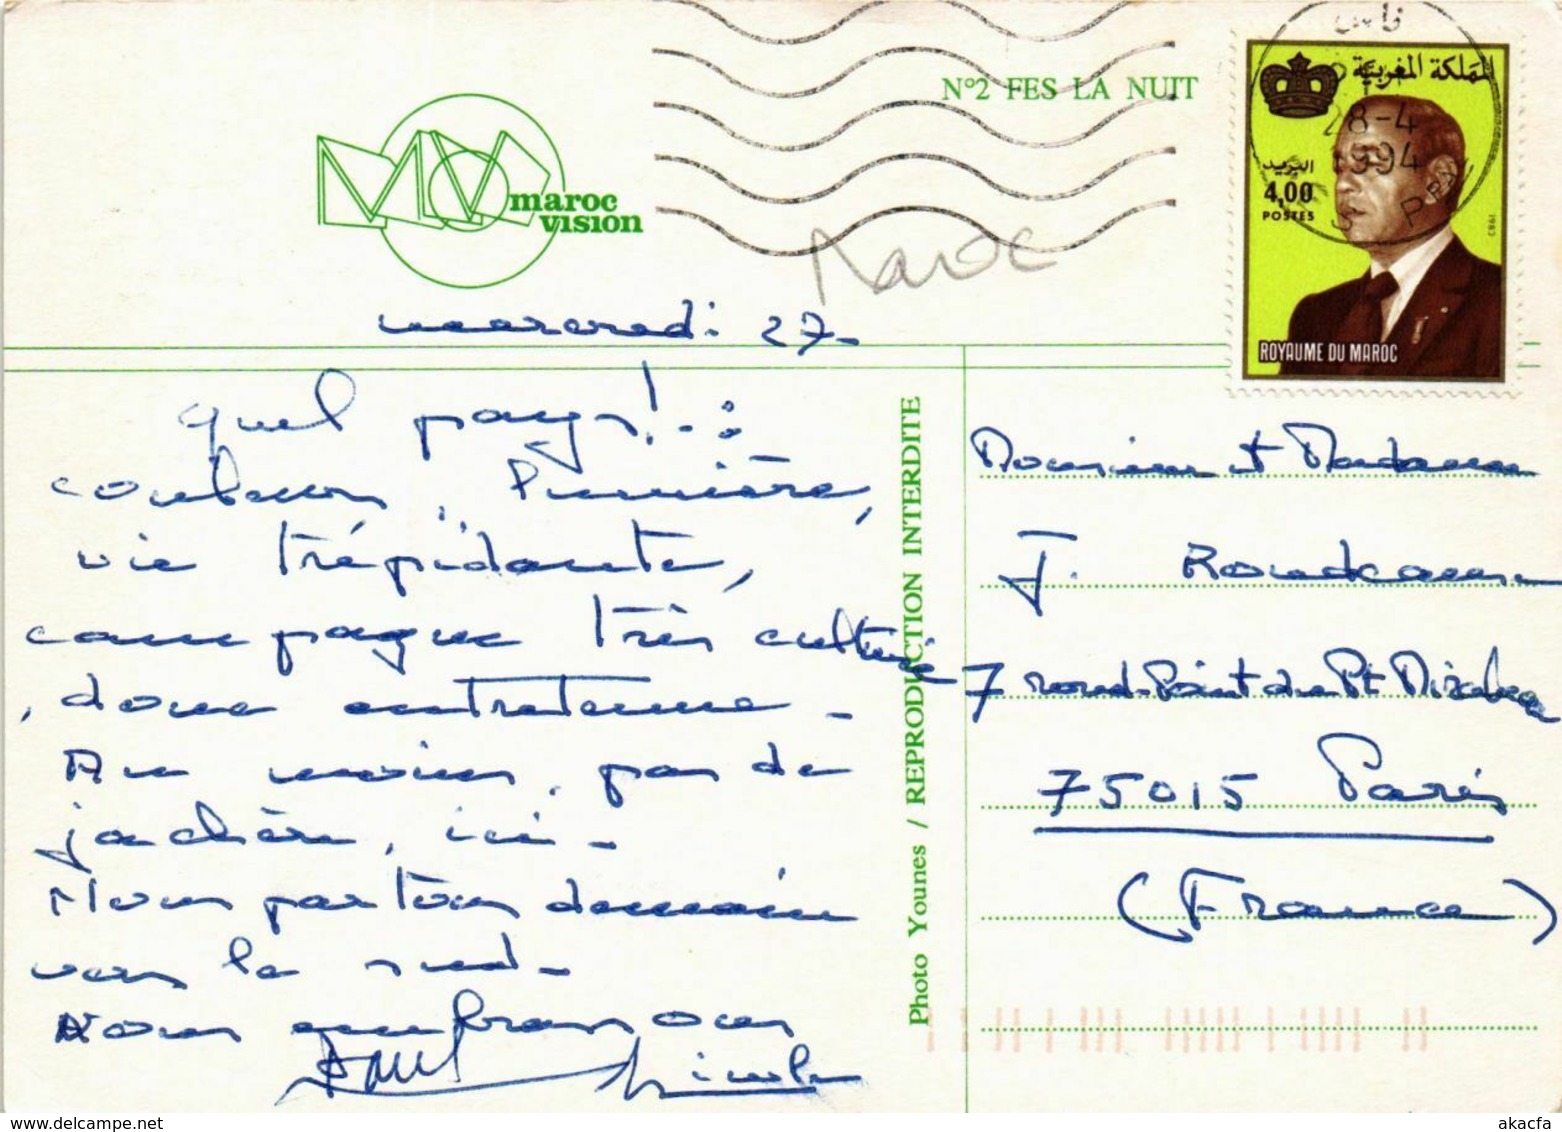 N°2 FES LA NUIT
maroc
vision
Maroc
فاس
28-4
1994
المملكة المغربية
البريد
4,00
POSTES
1983
ROYAUME DU MAROC
mercredi 27-
quel pays!..:
couleurs, lumière,
vie trépidante,
campagne très cultivée
, donc entretenue -
Au moins, pas de
jachère, ici -
Nous partons demain
vers le sud -
Nous embrassons
Paul Nicole
Photo Younes / REPRODUCTION INTERDITE
Monsieur et Madame
J. Rondeau
7 rond-Point du Pt Mirabeau
75015 Paris
(France)
www.delcampe.net
akacfa